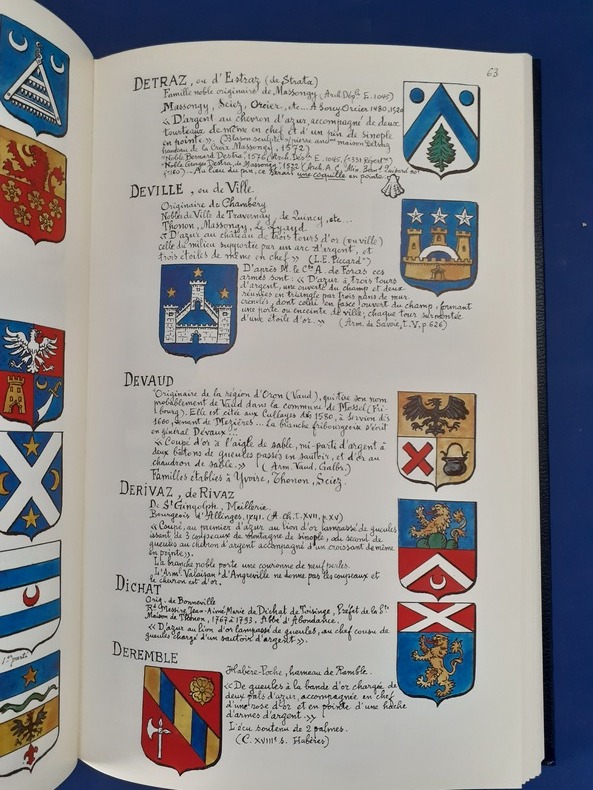 63
DETRAZ, ou d'Estraz (de Strata)
Famille noble originaire de Massongy (Arch. Dép. E. 1045)
Massongy, Sciez, Orcier, etc... A Soncy Orcier 1480, 1520
« D'argent au chevron d'azur, accompagné de deux
tourteaux de même en chef et d'un pin de sinople
en pointe ». (Blason sculpté pierre maison Detraz
hameau de la Croix, Massongy, 1572)
Noble Bernard Destra, 1576 (Arch. Dép. E. 1045, (1331
Noble Massongy, 1572
Au lieu du pin, ce serait une coquille en pointe.
DEVILLE, ou de Ville.
Originaire de Chambéry
Nobles de Ville de Travernay, de Quincy, etc...
Thonon, Massongy, Le Lyaud
« D'azur au château de trois tours d'or (ou ville)
celle du milieu supportée par un arc d'argent, et
trois étoiles de même en chef » (L.E. Piccard)
D'après M. le Cte A. de Foras ces
armes sont : « D'azur à trois tours
d'argent, une ouverte du champ et deux
réunies en triangle par trois pans de mur
crénelés, dont celui en face ouvert du champ, formant
une porte ou enceinte de ville; chaque tour surmontée
d'une étoile d'or. » (Arm. de Savoie, t. V, p. 626)
DEVAUD
Originaire de la région d'Oron (Vaud), qui tire son nom
probablement de Vaud dans la commune de Mossel (Fri-
bourg). Elle est citée aux Cullayes dès 1580, à Servion dès
1600, venant de Mezières... La branche fribourgeoise s'écrit
en général Dévaux.
« Coupé d'or à l'aigle de sable, mi-parti d'argent à
deux bâtons de gueules passés en sautoir, et d'or au
chaudron de sable. » (Arm. Vaud. Galbr.)
Familles établies à Yvoire, Thonon, Sciez
DERIVAZ, de RIVAZ
De St Gingolph, Meillerie
Bourgeois d'Allinges, 1741. (A. Ch. T. XVII, p. XV)
« Coupé, au premier d'azur au lion d'or lampassé de gueules
issant de 3 coupeaux de montagne de sinople, au second de
gueules au chevron d'argent accompagné d'un croissant de même
en pointe ».
La branche noble porte une couronne de neuf perles.
L'Arml Valaisan d'Angreville ne donne pas les coupeaux et
le chevron est d'or.
DICHAT
Orig. de Bonneville
Rd Messire Jean-Aimé Marie de Dichat de Toisinge, Préfet de la Ste
Maison de Thonon, 1767 à 1793. Abbé d'Abondance.
« D'azur au lion d'or lampassé de gueules, au chef cousu de
gueules chargé d'un sautoir d'argent ».
DEREMBLE
Habère-Poche, hameau de Ramble.
« De gueules à la bande d'or chargée de
deux pals d'azur, accompagnée en chef
d'une rose d'or et en pointe d'une hache
d'armes d'argent. »
L'écu soutenu de 2 palmes.
(C. XVIIIe s. Habères)
1ere partie